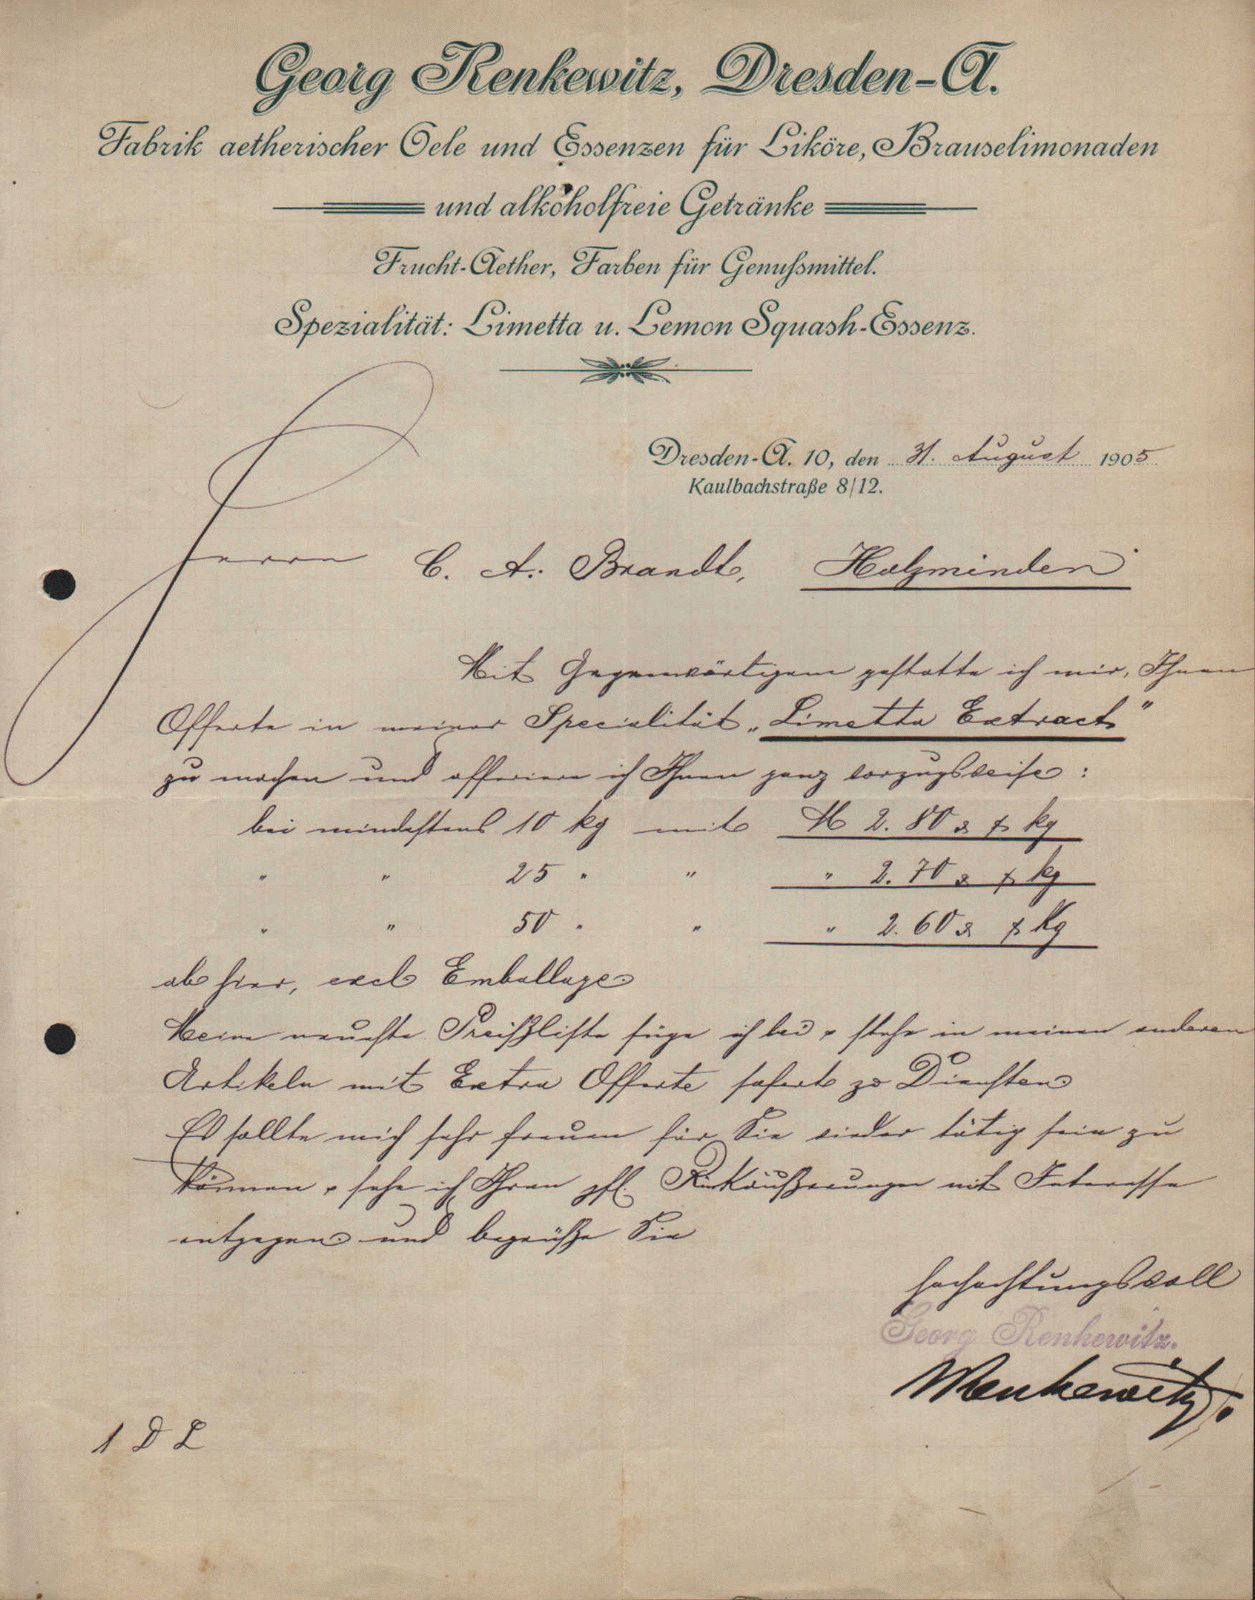 Georg Renkewitz, Dresden-A.
Fabrik aetherischer Oele und Essenzen für Liköre, Brauselimonaden
und alkoholfreie Getränke
Frucht-Aether, Farben für Genußmittel.
Spezialität: Limetta u. Lemon Squash-Essenz.
Dresden-A. 10, den 31. August 1905
Kaulbachstraße 8/12.
Herrn C. A. Brandt, Holzminden
Mit Gegenwärtigem gestatte ich mir, Ihnen
Offerte in meiner Specialität „Limetta Extract"
zu machen und offeriere ich Ihnen ganz vorzugsweise:
bei mindestens 10 kg mit M 2.80 kg
" " 25 " " " 2.70 kg
" " 50 " " " 2.60 Kg
ab hier, excl Emballage
Meine neueste Preißliste füge ich bei & stehe in meinen anderen
Artikeln mit Extra Offerte sofort zu Diensten
Es sollte mich sehr freuen für Sie wieder tätig sein zu
können & sehe ich Ihren gfl. Rückäußerungen mit Interesse
entgegen und begrüße Sie
hochachtungsvoll
Georg Renkewitz.
Renkewitz